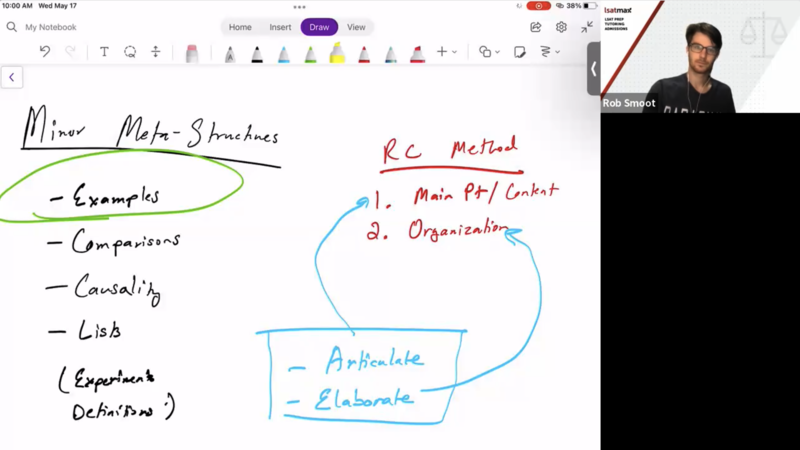 10:00 AM Wed May 17
38%
My Notebook
Home Insert Draw View
Minor Meta-Structures
- Examples
- Comparisons
- Causality
- Lists
(Experiments
Definitions)
RC Method
1. Main Pt/Content
2. Organization
- Articulate
- Elaborate
lsatmax
LSAT PREP
TUTORING
ADMISSIONS
Rob Smoot